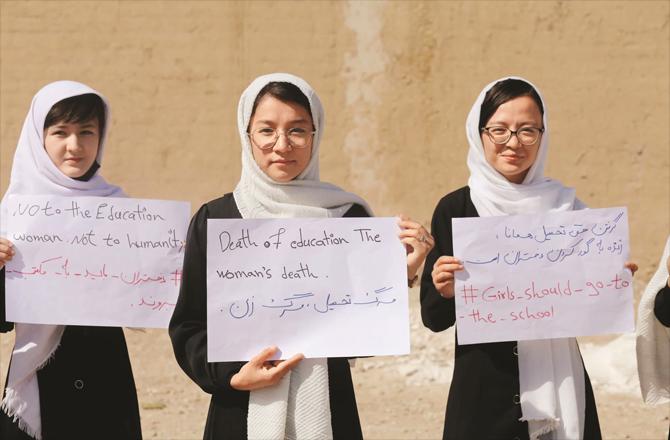 NOTO the Education
woman. not to humanity.
# دختران_باید_با_مکتب_
بروند.
Death of education The
woman's death.
مرگ تحصیل، مرگ زن.
گرفتن حق تحصیل همانا،
زنده با گور کردن دختران است
#Girls_should_go_to
_the_school